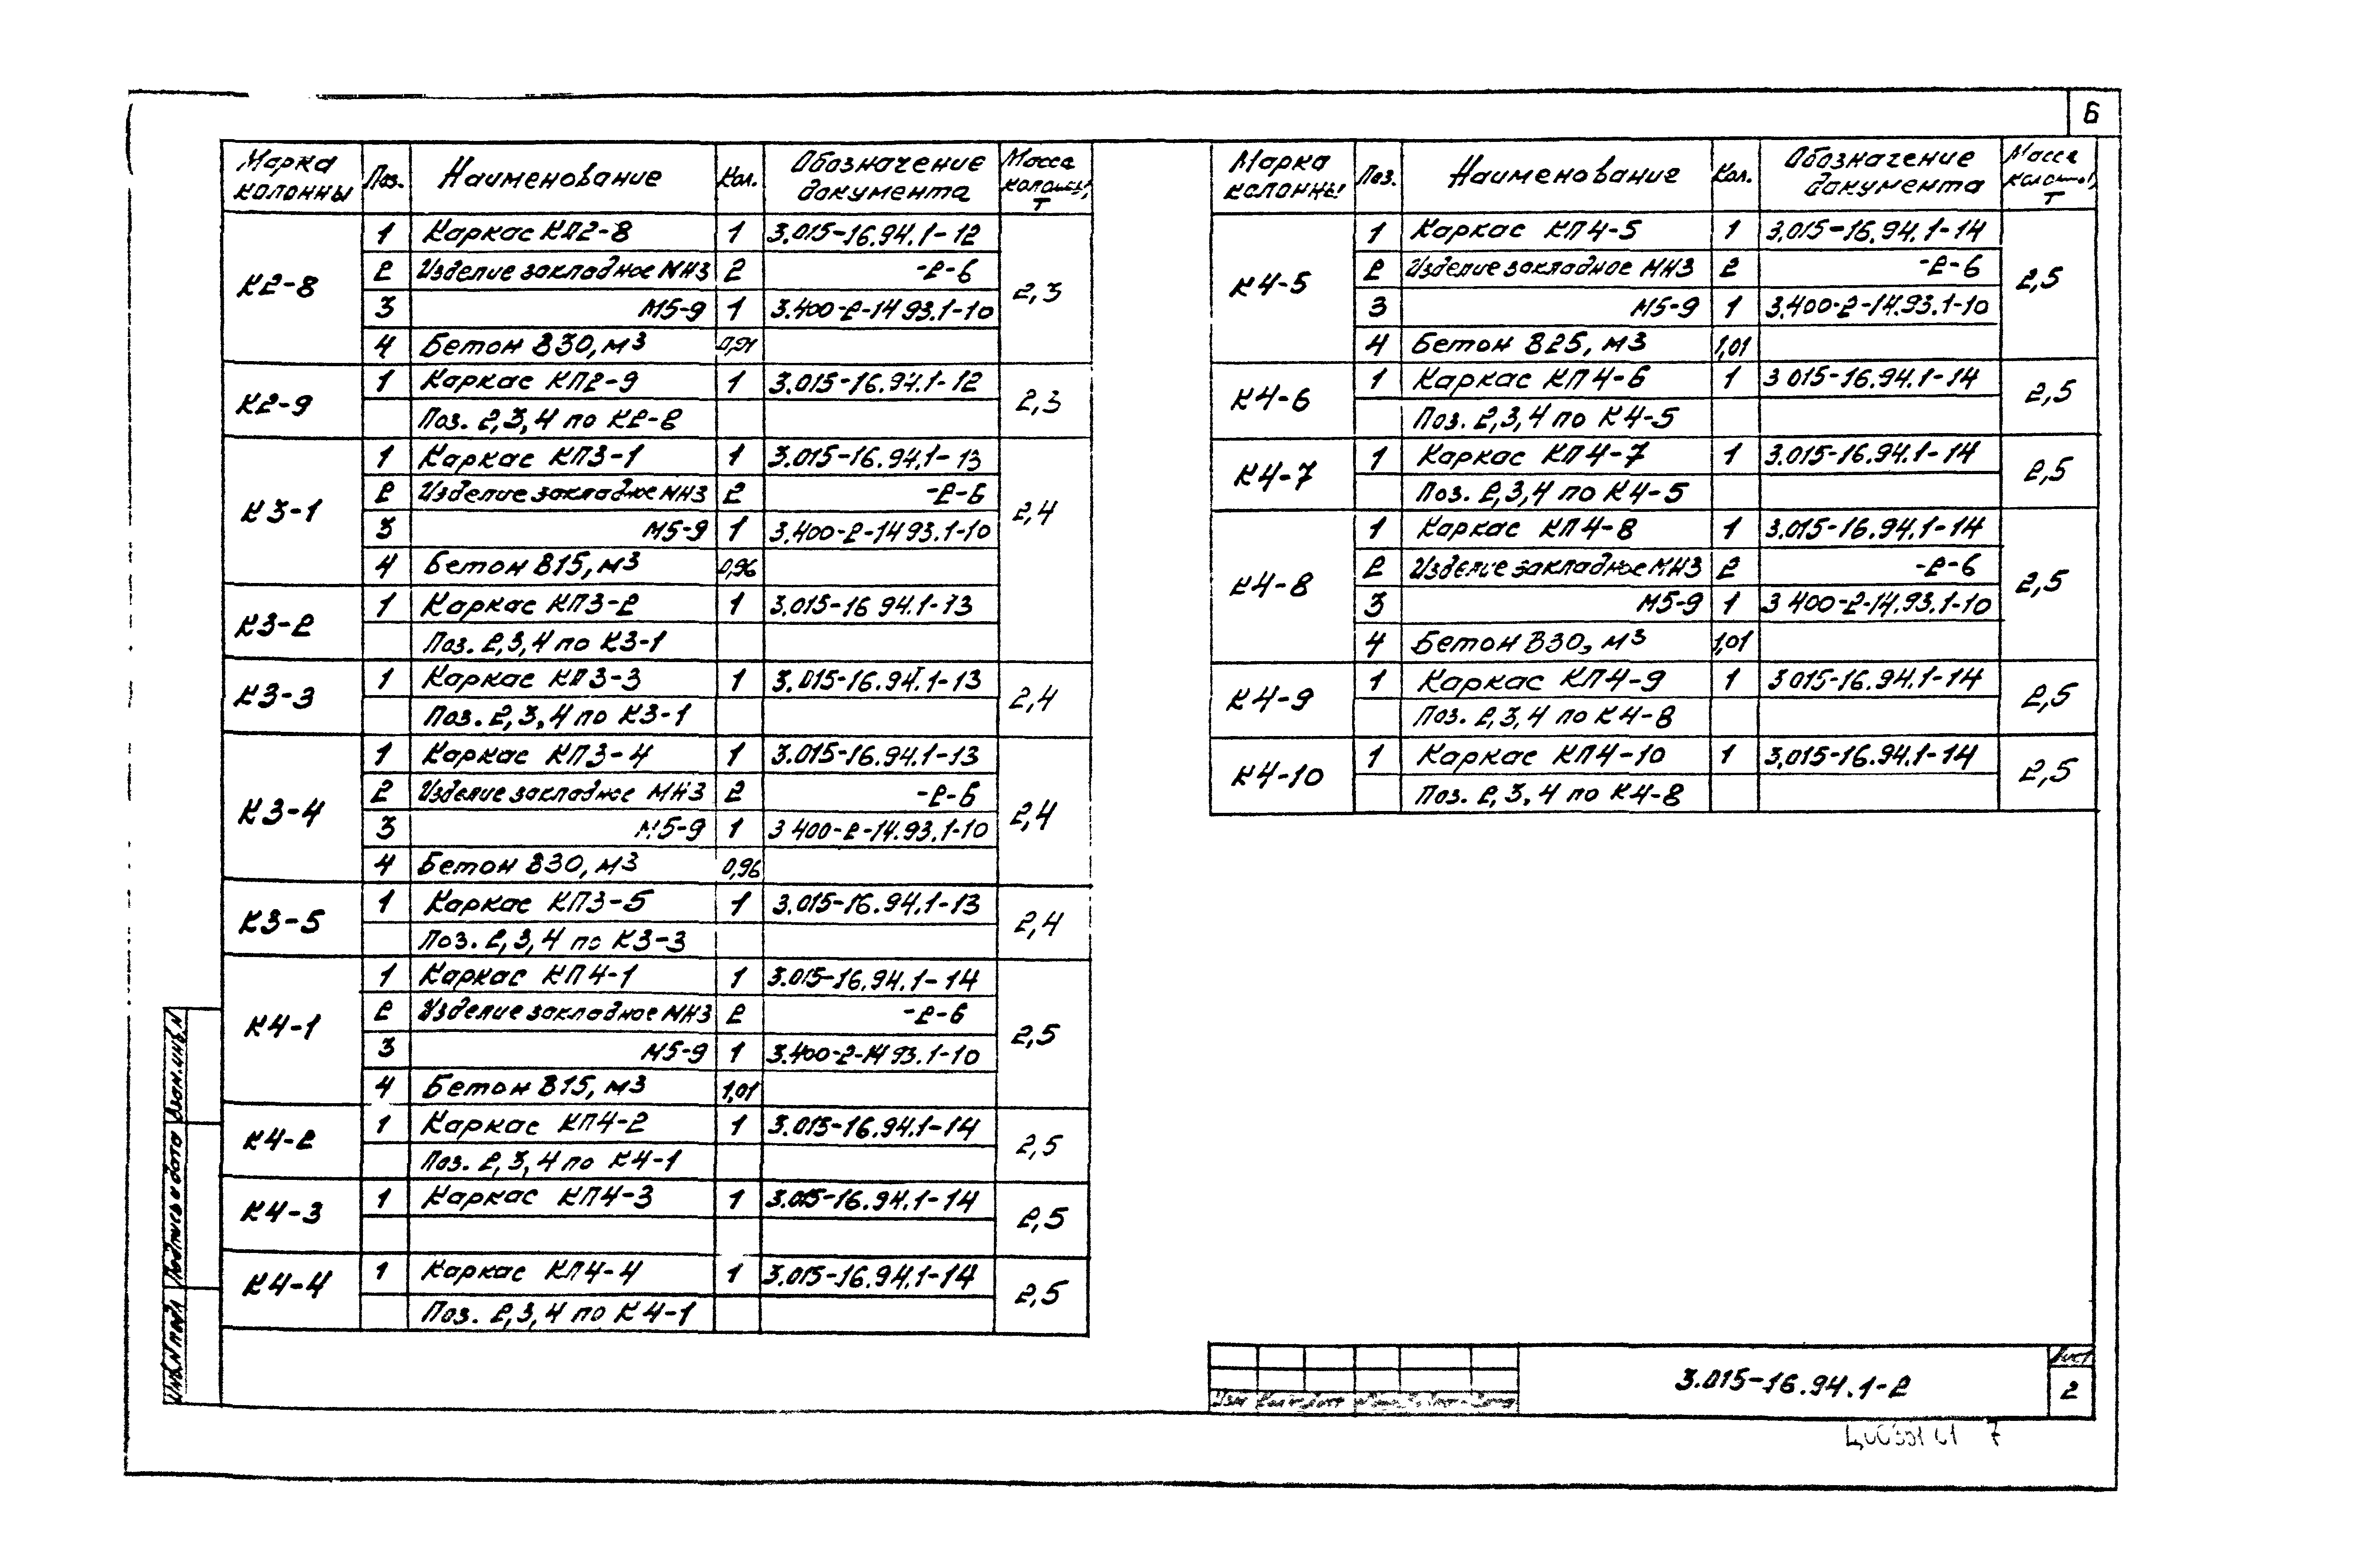 6
Марка колонны Поз. Наименование Кол. Обозначение документа Масса колонны, т
К2-8 1 Каркас КП2-8 1 3.015-16.94.1-12 2,3
2 Изделие закладное МН3 2 -2-6
3 М5-9 1 3.400-2-14 93.1-10
4 Бетон В30, м3 0,91
К2-9 1 Каркас КП2-9 1 3.015-16.94.1-12 2,3
Поз. 2,3,4 по К2-8
К3-1 1 Каркас КП3-1 1 3.015-16.94.1-13 2,4
2 Изделие закладное МН3 2 -2-6
3 М5-9 1 3.400-2-14 93.1-10
4 Бетон В15, м3 0,96
К3-2 1 Каркас КП3-2 1 3.015-16 94.1-13
Поз. 2,3,4 по К3-1
К3-3 1 Каркас КП3-3 1 3.015-16.94.1-13 2,4
Поз. 2,3,4 по К3-1
К3-4 1 Каркас КП3-4 1 3.015-16.94.1-13 2,4
2 Изделие закладное МН3 2 -2-6
3 М5-9 1 3 400-2-14.93.1-10
4 Бетон В30, м3 0,96
К3-5 1 Каркас КП3-5 1 3.015-16.94.1-13 2,4
Поз. 2,3,4 по К3-3
К4-1 1 Каркас КП4-1 1 3.015-16.94.1-14 2,5
2 Изделие закладное МН3 2 -2-6
3 М5-9 1 3.400-2-14 93.1-10
4 Бетон В15, м3 1,01
К4-2 1 Каркас КП4-2 1 3.015-16.94.1-14 2,5
Поз. 2,3,4 по К4-1
К4-3 1 Каркас КП4-3 1 3.015-16.94.1-14 2,5
К4-4 1 Каркас КП4-4 1 3.015-16.94.1-14 2,5
Поз. 2,3,4 по К4-1
Марка колонны Поз. Наименование Кол. Обозначение документа Масса колонны, т
К4-5 1 Каркас КП4-5 1 3.015-16.94.1-14 2,5
2 Изделие закладное МН3 2 -2-6
3 М5-9 1 3.400-2-14.93.1-10
4 Бетон В25, м3 1,01
К4-6 1 Каркас КП4-6 1 3 015-16.94.1-14 2,5
Поз. 2,3,4 по К4-5
К4-7 1 Каркас КП4-7 1 3.015-16.94.1-14 2,5
Поз. 2,3,4 по К4-5
К4-8 1 Каркас КП4-8 1 3.015-16.94.1-14 2,5
2 Изделие закладное МН3 2 -2-6
3 М5-9 1 3 400-2-14.93.1-10
4 Бетон В30, м3 1,01
К4-9 1 Каркас КП4-9 1 3 015-16.94.1-14 2,5
Поз. 2,3,4 по К4-8
К4-10 1 Каркас КП4-10 1 3.015-16.94.1-14 2,5
Поз. 2,3,4 по К4-8
Взам. инв. N
Подпись и дата
Инв. N подл
Изм
3.015-16.94.1-2
Лист
2
7